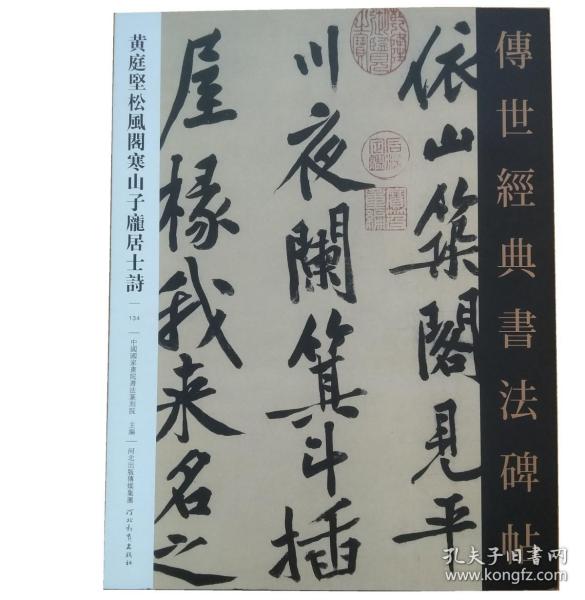 傳世經典書法碑帖
依山築閣見平
川夜闌箕斗插
屋椽我来名之
黄庭堅松風閣寒山子龐居士詩
134
中國國家畫院書法篆刻院 主編
河北出版傳媒集團
河北教育出版社
孔夫子旧书网
www.kongfz.com